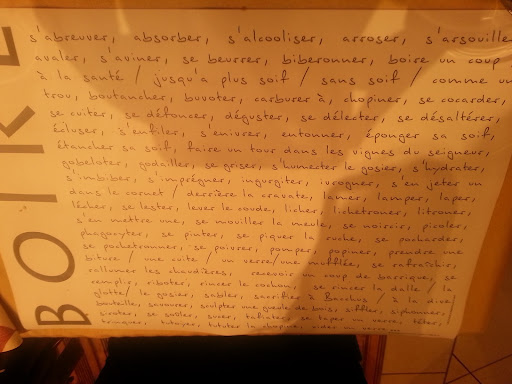 BOIRE
s'abreuver, absorber, s'alcooliser, arroser, s'arsouiller
avaler, s'aviner, se beurrer, biberonner, boire un coup
à la santé / jusqu'a plus soif / sans soif / comme un
trou, boutancher, buvoter, carburer à, chopiner, se cocarder,
se cuiter, se défoncer, déguster, se délecter, se désaltérer,
écluser, s'enfiler, s'enivrer, entonner, éponger sa soif,
étancher sa soif, faire un tour dans les vignes du seigneur,
gobeloter, godailler, se griser, s'humecter le gosier, s'hydrater,
s'imbiber, s'imprégner, ingurgiter, ivrogner, s'en jeter un
dans le cornet / derrière la cravate, lamer, lamper, laper,
lécher, se lester, lever le coude, licher, lichetronner, litroner,
s'en mettre une, se mouiller la meule, se noircir, picoler,
phagocyter, se pinter, se piquer la ruche, se pocharder,
se pochetronner, se poivrer, pomper, popiner, prendre une
biture / une cuite / un verre / une mufflée, se rafraîchir,
rallumer les chaudières, recevoir un coup de barrique, se
rempli, riboter, rincer le cochon, se rincer la dalle / la
glotte / le gosier, sabler, sacrifier à Bacchus / à la dive
bouteille, savourer, sculpter une gueule de bois, siffler, siphonner,
siroter, se soûler, sucer, tafiater, se taper un verre, téter,
trinquer, tututer la chopine, vider un verre